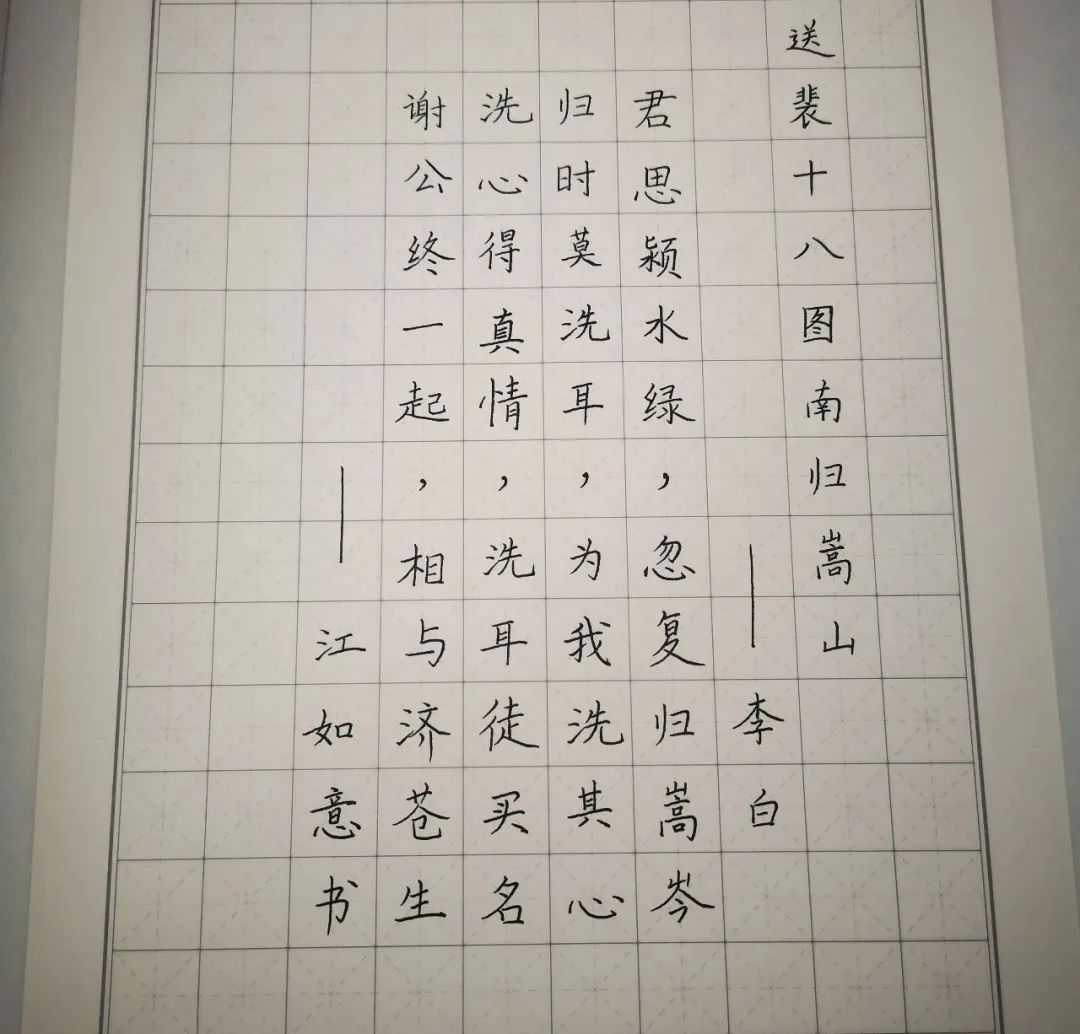 送裴十八图南归嵩山
——李白
君思颍水绿，忽复归嵩岑
归时莫洗耳，为我洗其心
洗心得真情，洗耳徒买名
谢公终一起，相与济苍生
——江如意书